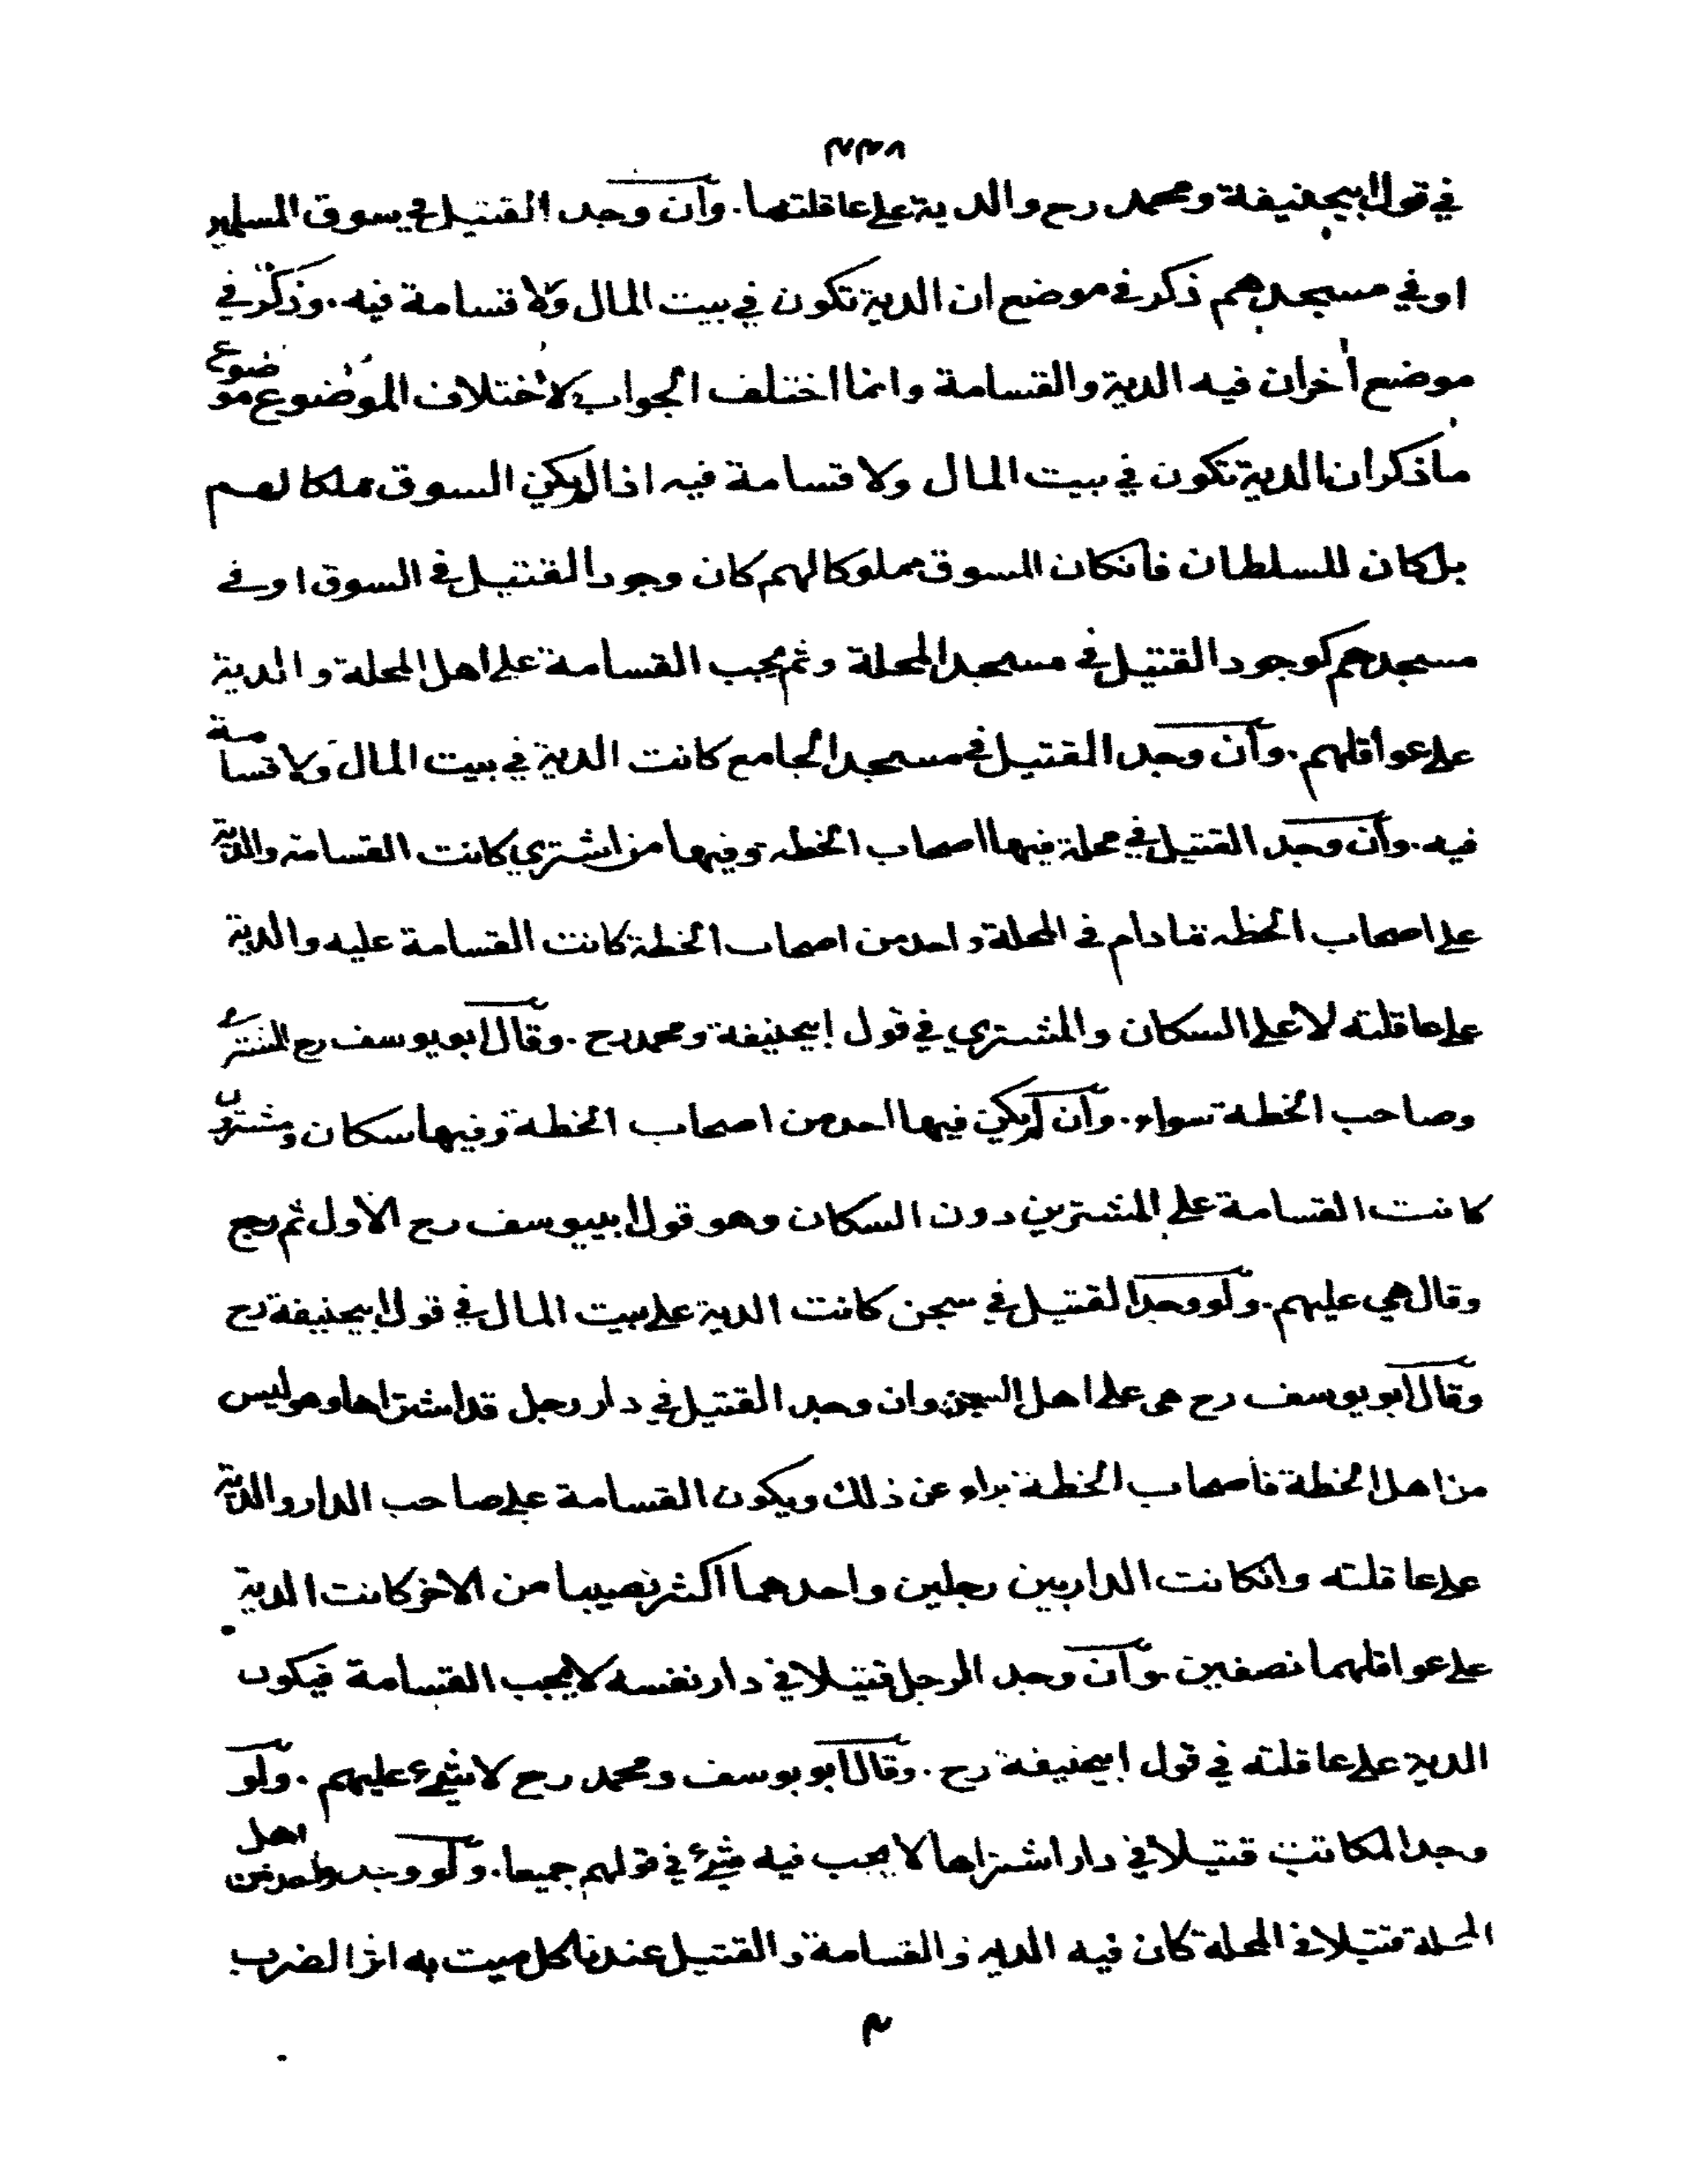 في قول ابيحنيفة ومحمد رح والدية على عاقلتهما. وان وجد القتيل في سوق المسلمين
او في مسجدهم ذكر في موضع ان الدية تكون في بيت المال ولا قسامة فيه. وذكر في
موضع اخران فيه الدية والقسامة وانما اختلف الجواب لاختلاف الموضوع موضوع
ماذكران الدية تكون في بيت المال ولا قسامة فيه اذا لم يكن السوق ملكا لهم
بل كان للسلطان فانكان السوق مملوكا لهم كان وجود القتيل في السوق او في
مسجدهم كوجود القتيل في مسجد المحلة وثم يجب القسامة على اهل المحلة والدية
على عواقلهم. وان وجد القتيل في مسجد الجامع كانت الدية في بيت المال ولا قسامة
فيه. وان وجد القتيل في محلة فيها اصحاب الخطه وفيها من اشتري كانت القسامة والدية
على اصحاب الخطه مادام في المحلة واحد من اصحاب الخطة كانت القسامة عليه والدية
على عاقلته لا على السكان والمشتري في قول ابيحنيفة ومحمد رح. وقال ابو يوسف رح المشتري
وصاحب الخطة سواء. وان لم يكن فيها احد من اصحاب الخطة وفيها سكان ومشترون
كانت القسامة على المشترين دون السكان وهو قول ابييوسف رح الاول ثم رجع
وقال هي عليهم. ولو وجد القتيل في سجن كانت الدية على بيت المال في قول ابيحنيفة رح
وقال ابو يوسف رح هي على اهل السجن وان وجد القتيل في دار رجل قد اشتراها وهو ليس
من اهل الخطة فاصحاب الخطة براء عن ذلك ويكون القسامة على صاحب الدار والدية
على عاقلته وانكانت الدار بين رجلين واحدهما اكثر نصيبا من الاخر كانت الدية
على عواقلهما نصفين. وان وجد الرجل قتيلا في دار نفسه لا يجب القسامة فيكون
الدية على عاقلته في قول ابيحنيفة رح. وقال ابو يوسف ومحمد رح لا شيء عليهم. ولو
وجد المكاتب قتيلا في دار اشتراها لا يجب فيه شيء في قولهم جميعا. ولو وجد واحد من اهل
المحلة قتيلا في المحلة كان فيه الدية والقسامة والقتيل عندنا كل ميت به اثر الضرب